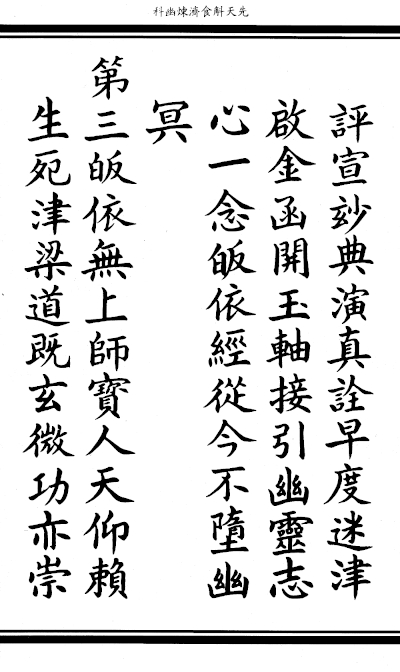 先天斛食濟煉幽科
評宣玅典演真詮早度迷津
啟金函開玉軸接引幽靈志
心一念皈依經從今不墮幽
冥
第三皈依無上師寶人天仰賴
生死津梁道既玄微功亦崇